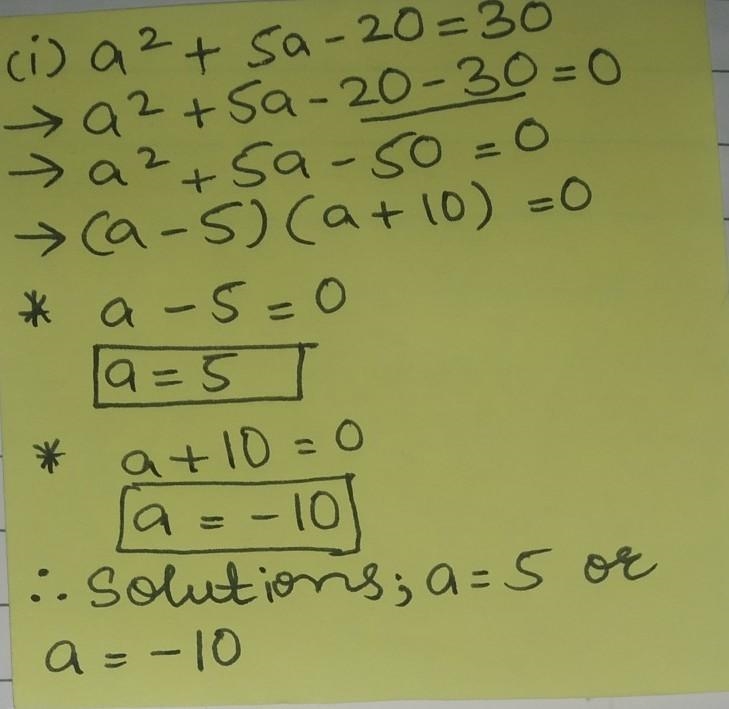 (i) a² + 5a - 20 = 30
→ a² + 5a - 20 - 30 = 0
→ a² + 5a - 50 = 0
→ (a - 5) (a + 10) = 0
* a - 5 = 0
a = 5
* a + 10 = 0
a = -10
∴ Solutions; a = 5 or
a = -10